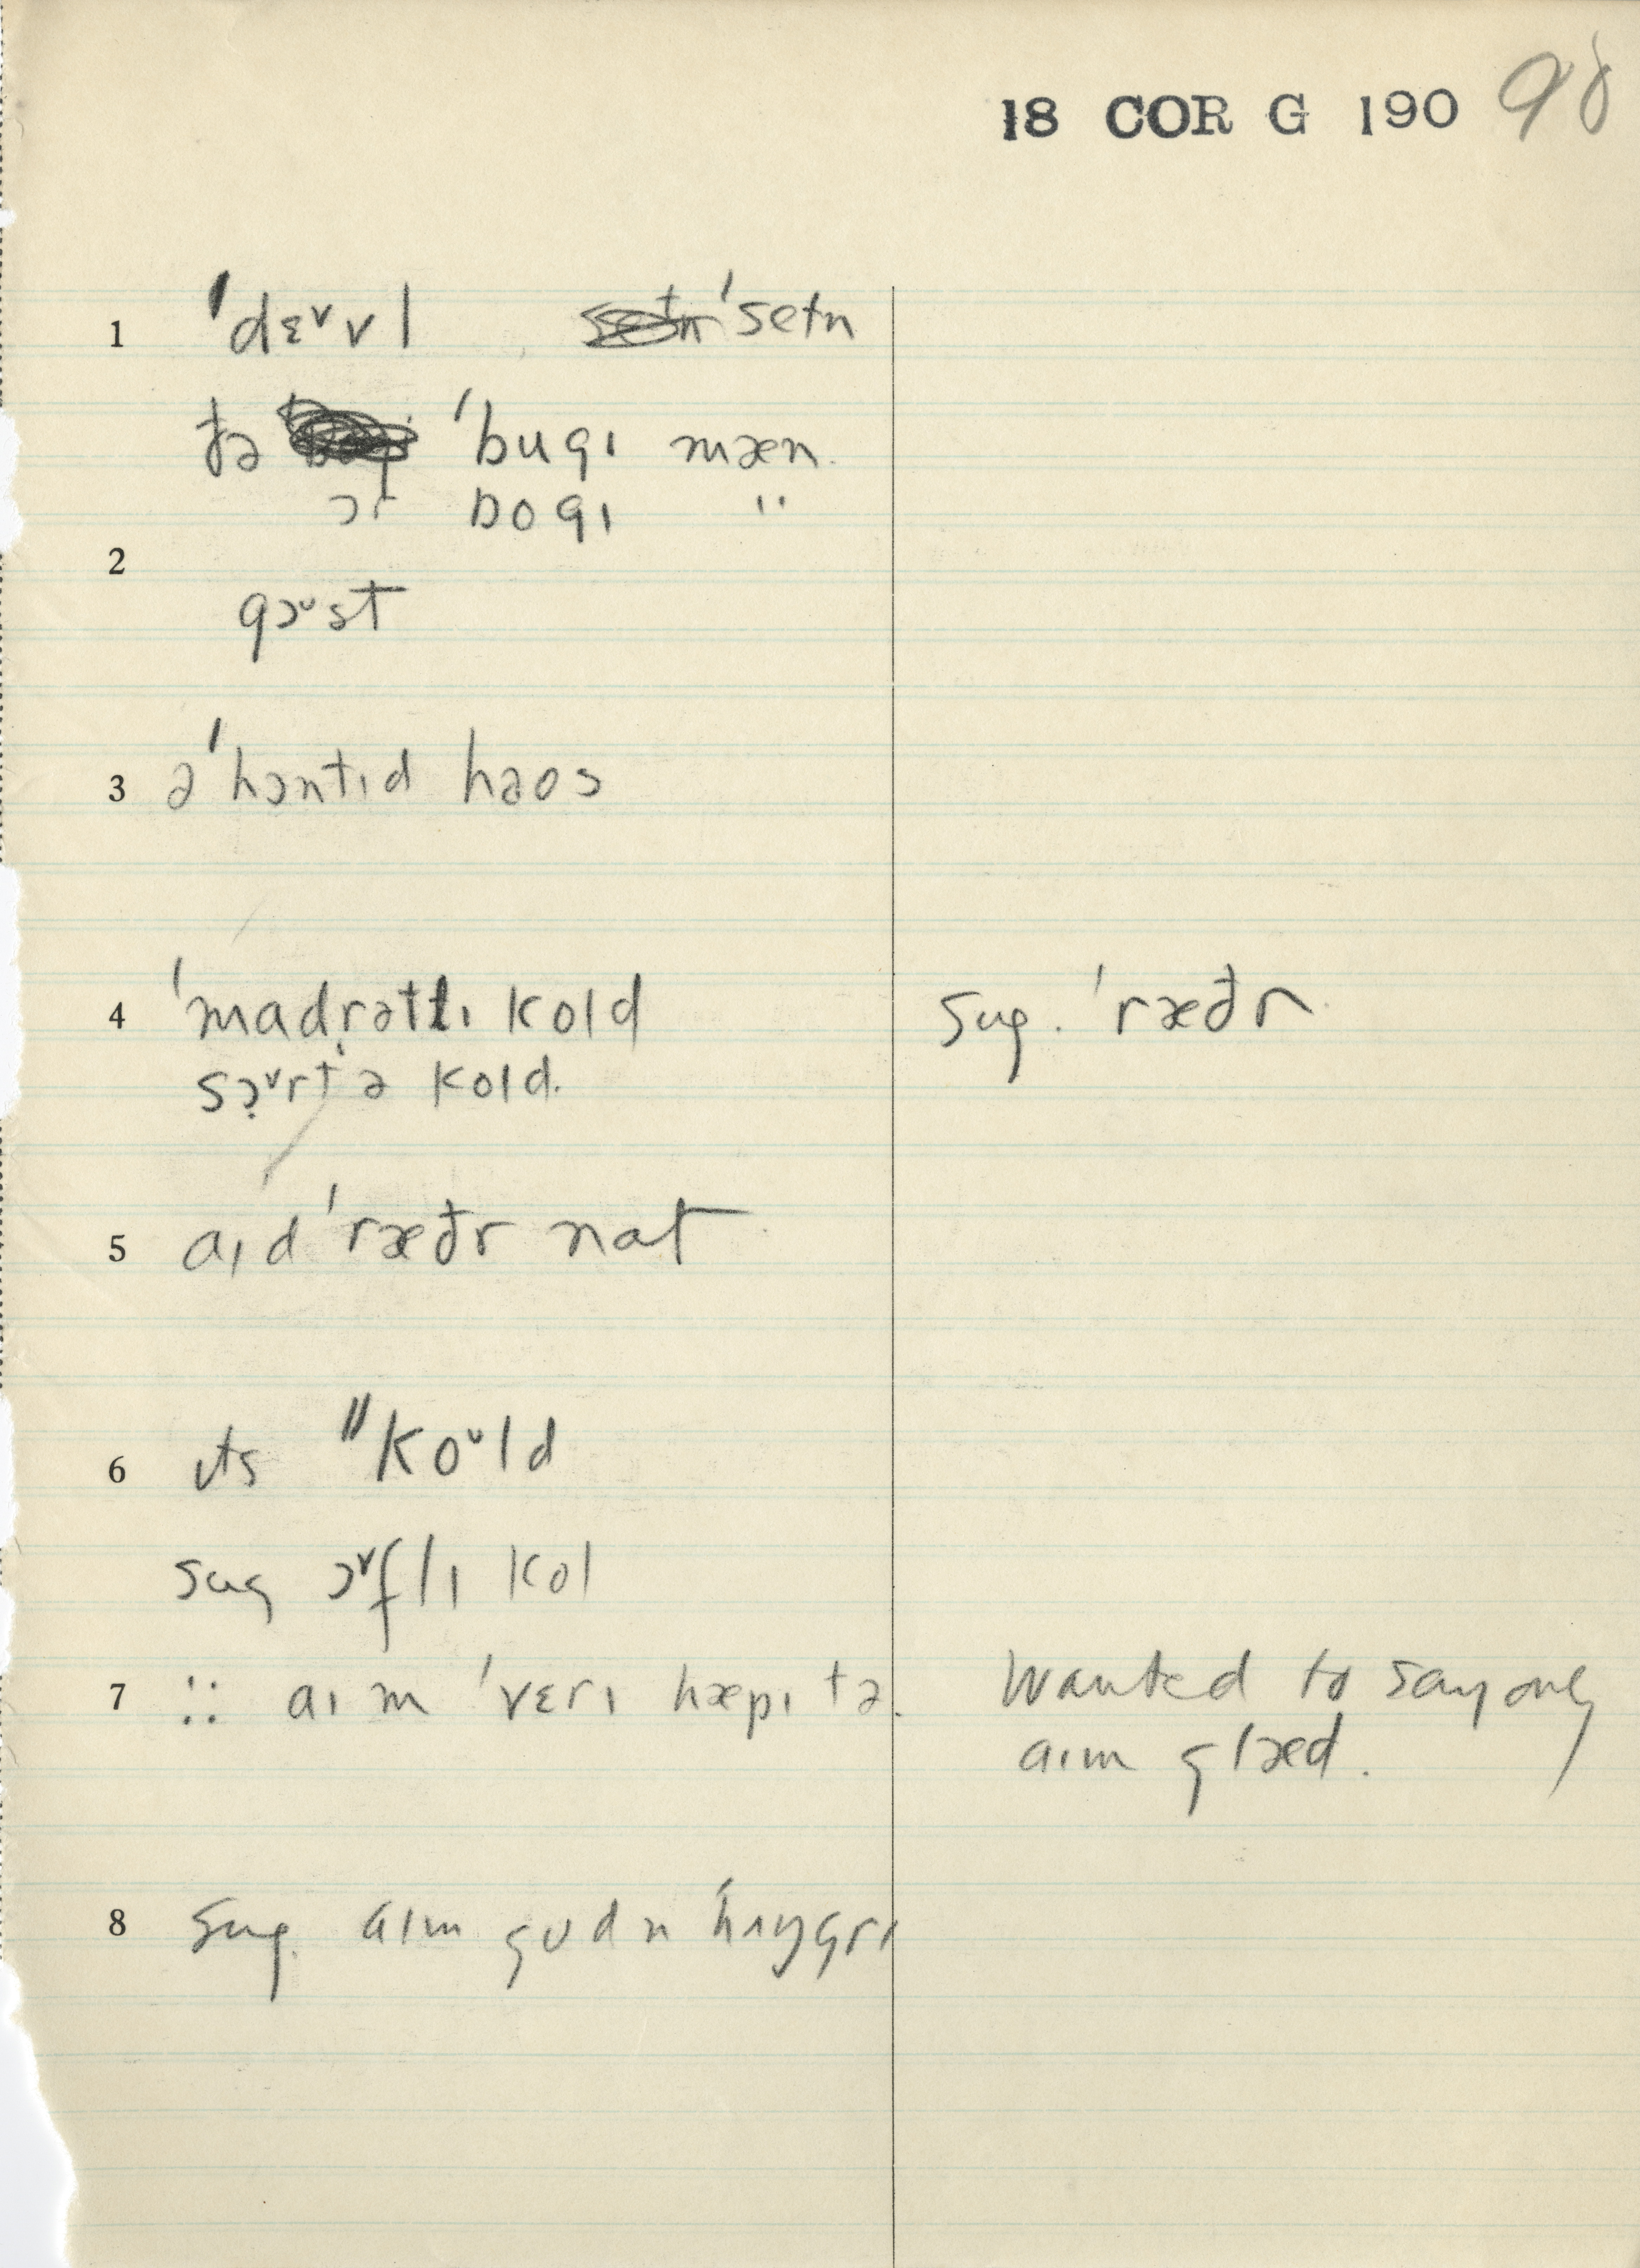 18 COR G 190 98
1 ˈdɛᵛvl ˈsetn
ðə ˈbugɪ mæn.
ɔr bogɪ "
2
gɔᵛst
3 əˈhɔntɪd həos
4 ˈmadrətlɪ kold sug. ˈræðr
sɔ̣ᵛrt ə kold.
5 aɪd ˈræðr nat
6 ɪts "koᵘld
sug ɔᵛflɪ kol
7 :: aɪm ˈvɛrɪ hæpɪ tə. Wanted to say only
aɪm glæd.
8 sug. aɪm gudn hʌŋgrɪ